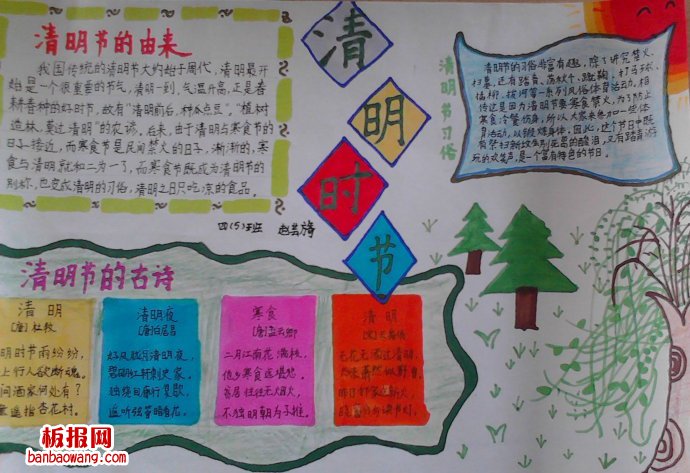 清明节的由来
我国传统的清明节大约始于周代，清明最开
始是一个很重要的节气，清明一到，气温升高，正是春
耕春种的好时节，故有“清明前后，种瓜点豆。”“植树
造林，莫过清明”的农谚。后来，由于清明与寒食节的
日子接近，而寒食节是民间禁火的日子，渐渐的，寒
食与清明就和二为一了，而寒食节既成为清明节的
别称，也变成清明的习俗，清明之日只吃凉的食品。
四（5）班
清明时节
清明节习俗
清明节的习俗丰富有趣，除了讲究禁火、
扫墓，还有踏青、荡秋千、蹴鞠、打马球、
插柳、拔河等一系列风俗体育活动。相
传这是因为清明节要寒食禁火，为了防止
寒食冷餐伤身，所以大家来参加一些体
育活动，以锻炼身体。因此，这个节日中既
有祭扫新坟生别死离的酸泪，又有踏青游
玩的欢笑声，是一个富有特色的节日。
清明节的古诗
清明
[唐]杜牧
明时节雨纷纷，
上行人欲断魂。
问酒家何处有？
童遥指杏花村。
清明夜
[唐]白居易
好风胧月清明夜，
碧砌红轩刺史家。
独绕回廊行复歇，
遥听弦管暗看花。
寒食
[唐]孟云卿
二月江南花满枝，
他乡寒食远堪悲。
贫居往往无烟火，
不独明朝为子推。
清明
无花无酒过清明，
兴味萧然似野僧。
昨日邻家乞新火，
晓窗分与读书灯。
板报网
banbaowang.com